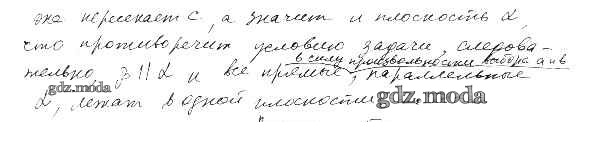 она пересекает с, а значит и плоскость α,
что противоречит условию задачи, следова-
в силу произвольности выбора a и b
тельно, β || α и все прямые, параллельные
gdz.moda
α, лежат в одной плоскости
gdz.moda